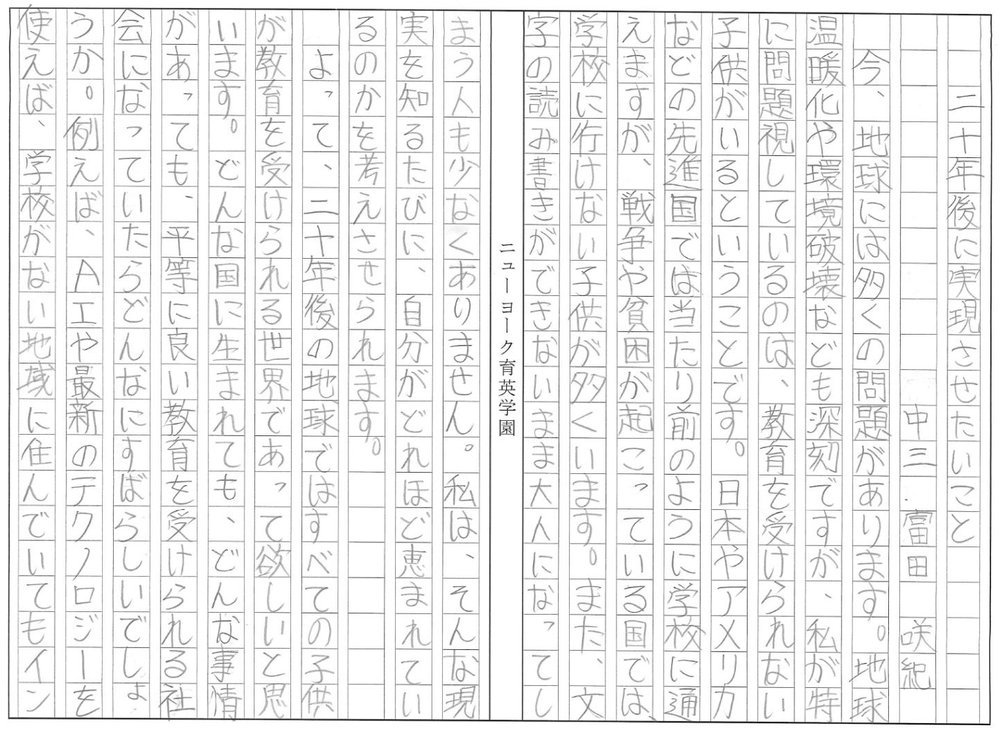 二十年後に実現させたいこと
中三 富田 咲紀
今、地球には多くの問題があります。地球
温暖化や環境破壊なども深刻ですが、私が特
に問題視しているのは、教育を受けられない
子供がいるということです。日本やアメリカ
などの先進国では当たり前のように学校に通
えますが、戦争や貧困が起こっている国では、
学校に行けない子供が多くいます。また、文
字の読み書きができないまま大人になってし
ニューヨーク育英学園
まう人も少なくありません。私は、そんな現
実を知るたびに、自分がどれほど恵まれてい
るのかを考えさせられます。
よって、二十年後の地球ではすべての子供
が教育を受けられる世界であって欲しいと思
います。どんな国に生まれても、どんな事情
があっても、平等に良い教育を受けられる社
会になっていたらどんなにすばらしいでしょ
うか。例えば、AIや最新のテクノロジーを
使えば、学校がない地域に住んでいてもイン